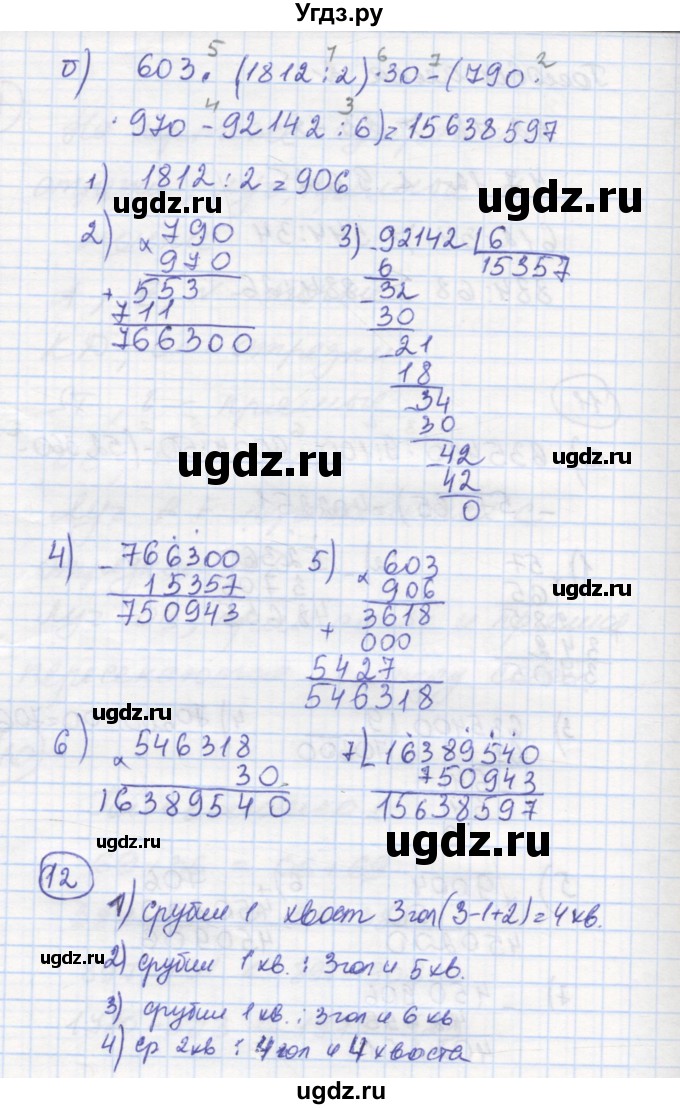 Угдз.ру
б) 603 · (1812 : 2) · 30 - (790 ·
5 1 6 7 2
· 970 - 92142 : 6) = 15638597
4 3
1) 1812 : 2 = 906
ugdz.ru ugdz.ru
2) × 790
970
+ 553
711
766300
3) - 92142 | 6
6 15357
- 32
30
- 21
18
- 34
30
- 42
42
0
ugdz.ru ugdz.ru
4) - 766300
15357
750943
5) × 603
906
+ 3618
000
5427
546318
ugdz.ru
ugdz.ru
6) × 546318
30
16389540
7) - 16389540
750943
15638597
ugdz.ru ugdz.ru
12
1) срубил 1 хвост 3 гол (3-1+2) = 4 хв.
2) срубил 1 хв. : 3 гол и 5 хв.
3) срубил 1 хв. : 3 гол и 6 хв
4) ср 2 хв : 4 гол и 4 хвоста
ugdz.ru ugdz.ru
ugdz.ru